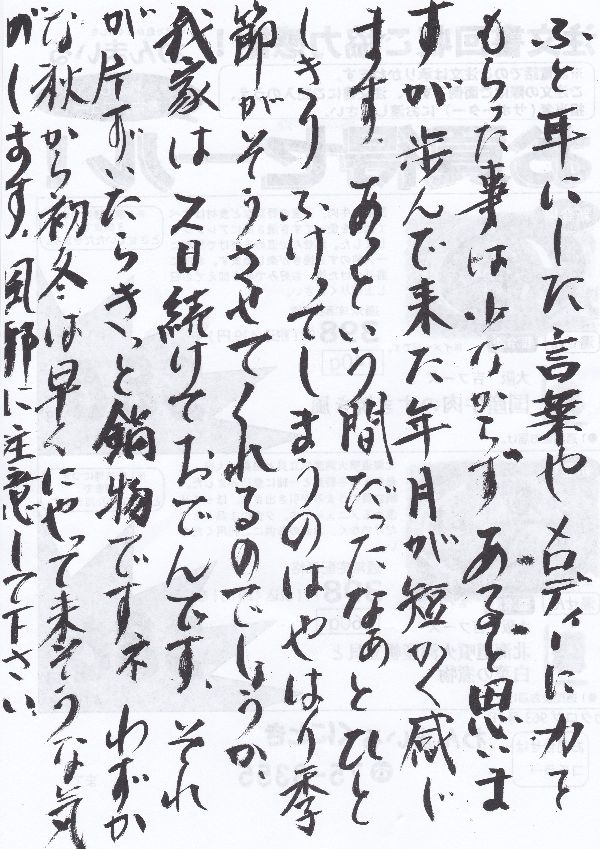 ふと耳にした言葉やメロディーに力を
もらった事は少なからずあると思いま
すが歩んで来た年月が短かく感じ
ます。あっという間だったなぁとひと
しきりふけってしまうのはやはり季
節がそうさせてくれるのでしょうか、
我家は 日続けておでんです、それ
が片ずいたらきっと鍋物ですネ わずか
な秋から初冬は早くにやって来そうな気
がします。風邪に注意して下さい